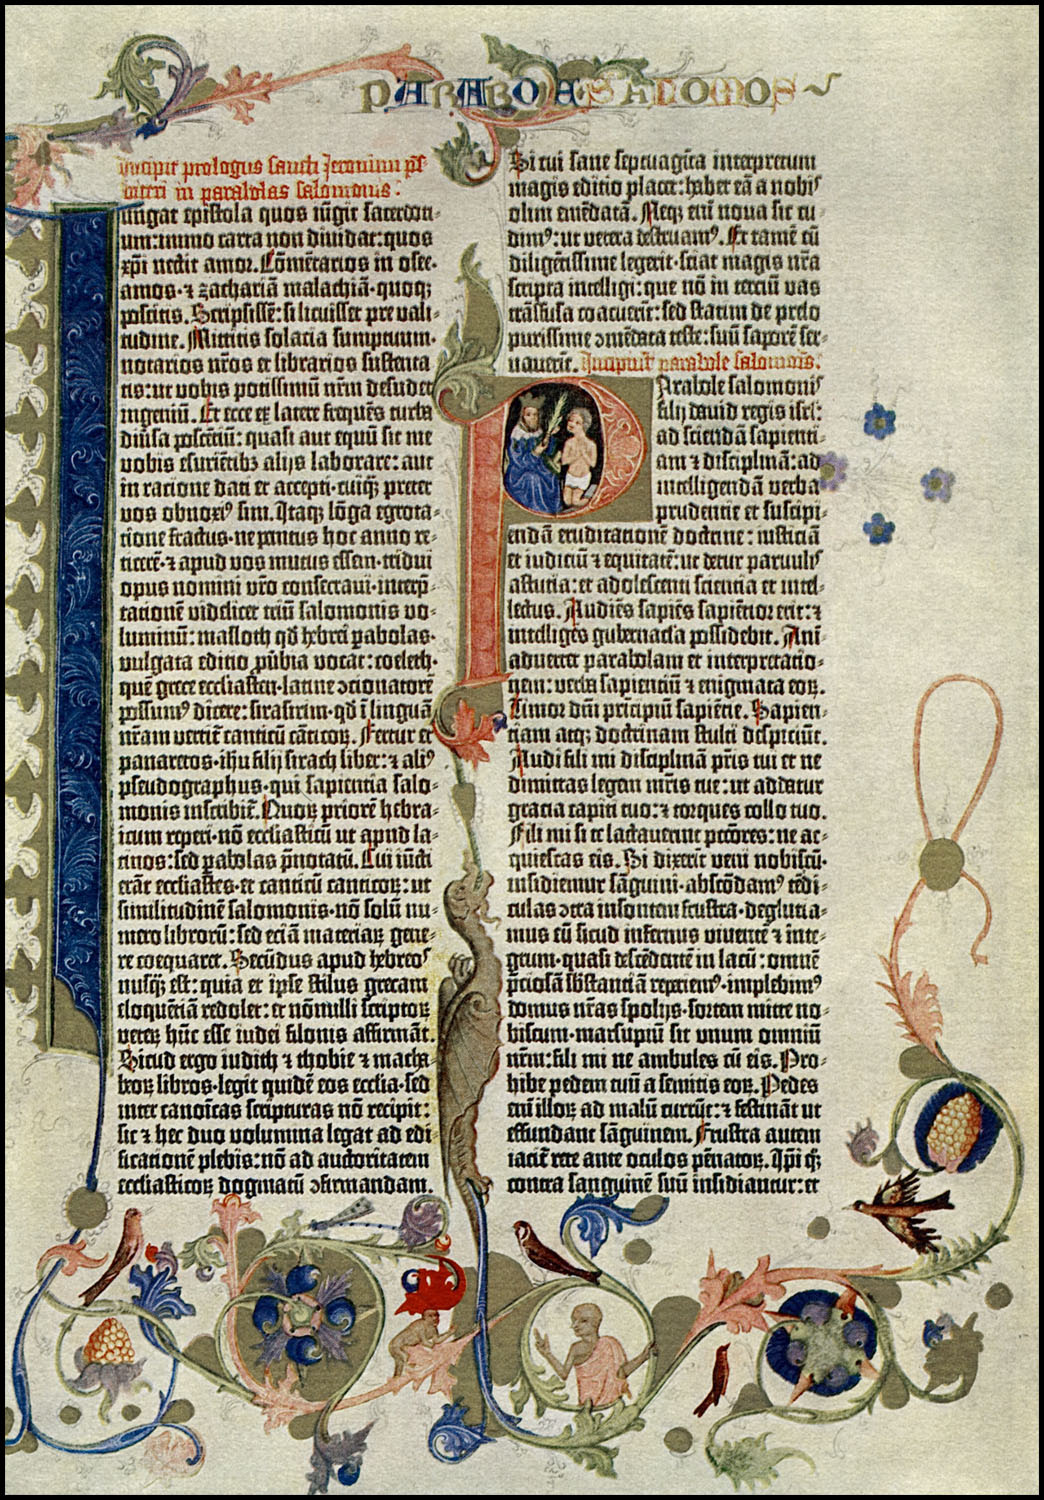 PARABOLAE SALOMONIS
Incipit prologus sancti Jeronimi p̄s
biteri in parabolas salomonis.
Iungat epistola quos iūgit sacerdoti-
um: immo carta non diuidat: quos
xp̄i nectit amor. Cōmētarios in osee·
amos· ⁊ zachariā malachiā· quoqꝫ
poscitis. Scripsissē: si licuisset pre vali-
tudine. Mittitis solacia sumptuum·
notarios nr̄os et librarios sustenta
tis: ut vobis potissimū nr̄m desudet
ingeniū. Et ecce ex latere frequēs turba
diūsa poscētiū: quasi aut equū sit me
vobis esuriētibꝫ alijs laborare: aut
in ratione dati et accepti· cuiqꝫ preter
vos obnoxiꝰ sim. Itaqꝫ lōga egrota-
tione fractus· ne penitus hoc anno re-
ticerē· ⁊ apud vos mutus essem· tridui
opus nomini vr̄o consecraui· interp̄-
tationē videlicet triū salomonis vo-
luminū: masloth qd̄ hebrei ꝑabolas·
vulgata editio ꝓūbia vocat: coeleth·
quē grece ecclīasten· latine ↄcionatorē
possumꝰ dicere: sirasirim· qd̄ ī linguā
nr̄am vertit̄ canticū cāticoꝝ. Fertur et
panaretos· ihū filij sirach liber: ⁊ aliꝰ
pseudographus· qui sapientia salo-
monis inscribit̄. Quoꝝ priorē hebra-
icum reperi· nō ecclīasticū ut apud la-
tinos: sed ꝑabolas p̄notatū. Cui iūcti
erāt ecclīastes· et canticū canticoꝝ: ut
similitudinē salomonis· nō solū nu-
mero librorū: sed eciā materiaꝝ gene-
re coequaret. Secūdus apud hebreoˢ
nusqꝫ est: quia et ipse stilus grecam
eloquētiā redolet: et nōnulli scriptoꝝ
veteꝝ hūc esse iudei filonis affirmāt.
Sicud ergo iudith ⁊ thobie ⁊ macha-
beoꝝ libros· legit quidē eos ecclīa· sed
inter canoīcas scripturas nō recipit:
sic ⁊ hec duo volumina legat ad edi-
ficationē plebis: nō ad auctoritatem
ecclīasticoꝝ dogmatū ↄfirmandam.
Si cui sane septuagīta interpretum
magis editio placet: habet eā a nobiˢ
olim emēdatā. Neqꝫ eni noua sic cu-
dimꝰ: ut vetera destruamꝰ. Et tamē cū
diligētissime legerit· sciat magis nr̄a
scripta intelligi: que nō in terciū vas
trāsfusa coacuerīt: sed statim de prelo
purissime ↄmēdata teste: suū saporē ser-
uauerīt. Incipiūt parabole salomonis.
Parabole salomoniˢ
filij dauid regis isrl̄:
ad sciendā sapienti-
am ⁊ disciplinā: ad
intelligendā verba
prudentie et suscipi-
endā eruditationē doctrine: iusticiā
et iudiciū ⁊ equitatē: ut detur paruuliˢ
astutia: et adolescenti scientia et intel-
lectus. Audiēs sapiēs sapiētior erit: ⁊
intelligēs gubernacla possidebit. Ani-
aduertet parabolam et interpretatio-
nem: verba sapientiū ⁊ enigmata eoꝝ.
Timor dn̄i pricipiū sapiētie. Sapien-
tiam atqꝫ doctrinam stulti despiciūt.
Audi fili mi disciplinā pris̄ tui et ne
dimittas legem mr̄is tue: ut addatur
gracia capiti tuo: ⁊ torques collo tuo.
Fili mi si te lactauerint pctōres: ne ac-
quiescas eis. Si dixerīt veni nobiscū·
insidiemur sāguini· abscōdamꝰ tēdi-
culas ↄtra insontem frustra· deglutia-
mus eū sicud infernus viuentē ⁊ inte-
grum· quasi descēdentē in lacū: omnē
p̄ciosā sbstantiā reperiemꝰ· implebimꝰ
domus nr̄as spolijs· sortem mitte no-
biscum· marsupiū sit vnum omniū
nr̄m: fili mi ne ambules cū eis. Pro-
hibe pedem tuū a semitis eoꝝ. Pedes
eni illoꝝ ad malū currūt: ⁊ festināt ut
effundant sāguinem. Frustra autem
iacit̄ rete ante oculos pēnatoꝝ. Ip̄i qꝫ
contra sanguinē suū insidiantur: et